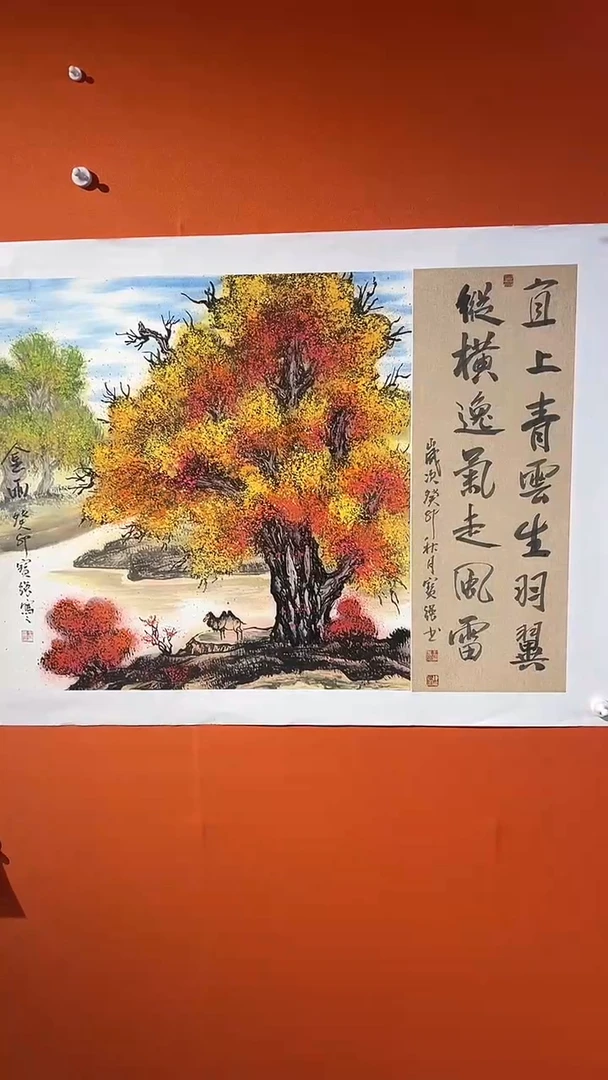 宜上青雲生羽翼
縱橫逸氣走風雷
歲次癸卯秋月寶強书
金雨癸卯寶強寫